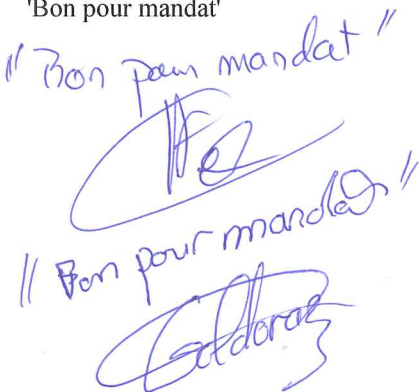 'Bon pour mandat'
" Bon pour mandat "
" Bon pour mandat "